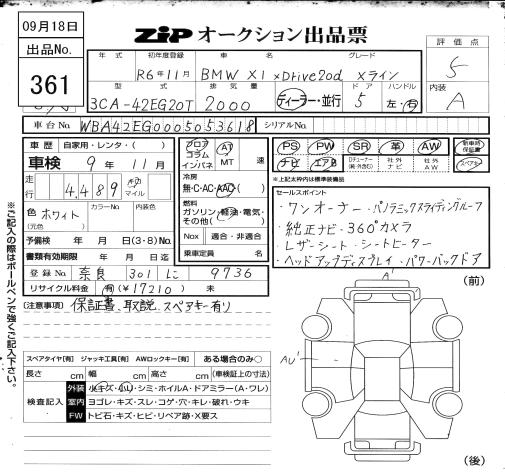 09月18日
出品No.
361
ZIP オークション出品票
年式 初年度登録 車名 グレード
R6年11月 BMW X1 xDrive20d Xライン
評価点
5
型式 排気量 ドア ハンドル
3CA-42EG20T 2000 ディーラー・並行 5 左・右
内装
A
車台No. WBA42EG0005053618 シリアルNo.
車歴 自家用・レンタ・( )
車検 9年11月
走行 4,489 km マイル
色 ホワイト カラーNo. 内装色
(元色)
予備検 年 月 日(3・8)No.
書類有効期限 年 月 日迄
登録No. 奈良 301 に 9736
リサイクル料金 有(¥17210) 未
フロア コラム インパネ
AT MT 速
冷房
無・C・AC・AAC
燃料
ガソリン・軽油・電気・その他( )
Nox 適合・非適合
乗車定員 名
PS PW SR 革 AW
ナビ エアB Dチューナー(純・外含む) 社外ナビ 社外AW
新車時保証書
スペアキー
※上記太枠内は標準装備品
セールスポイント
・ワンオーナー・パノラミックスライディングルーフ
・純正ナビ・360°カメラ
・レザーシート・シートヒーター
・ヘッドアップディスプレイ・パワーバックドア
(注意事項) 保証書、取説、スペアキー有り
※ご記入の際はボールペンで強くご記入下さい。
スペアタイヤ[有] ジャッキ工具[有] AWロックキー[有] ある場合のみ○
長さ cm 幅 cm 高さ cm (車検証上の寸法)
検査記入
外装 小キズ・凹・シミ・ホイルA・ドアミラー(A・ワレ)
室内 ヨゴレ・キズ・スレ・コゲ・穴・キレ・破れ・ウキ
FW トビ石・キズ・ヒビ・リペア跡・X要ス
A'
(前)
AU'
(後)